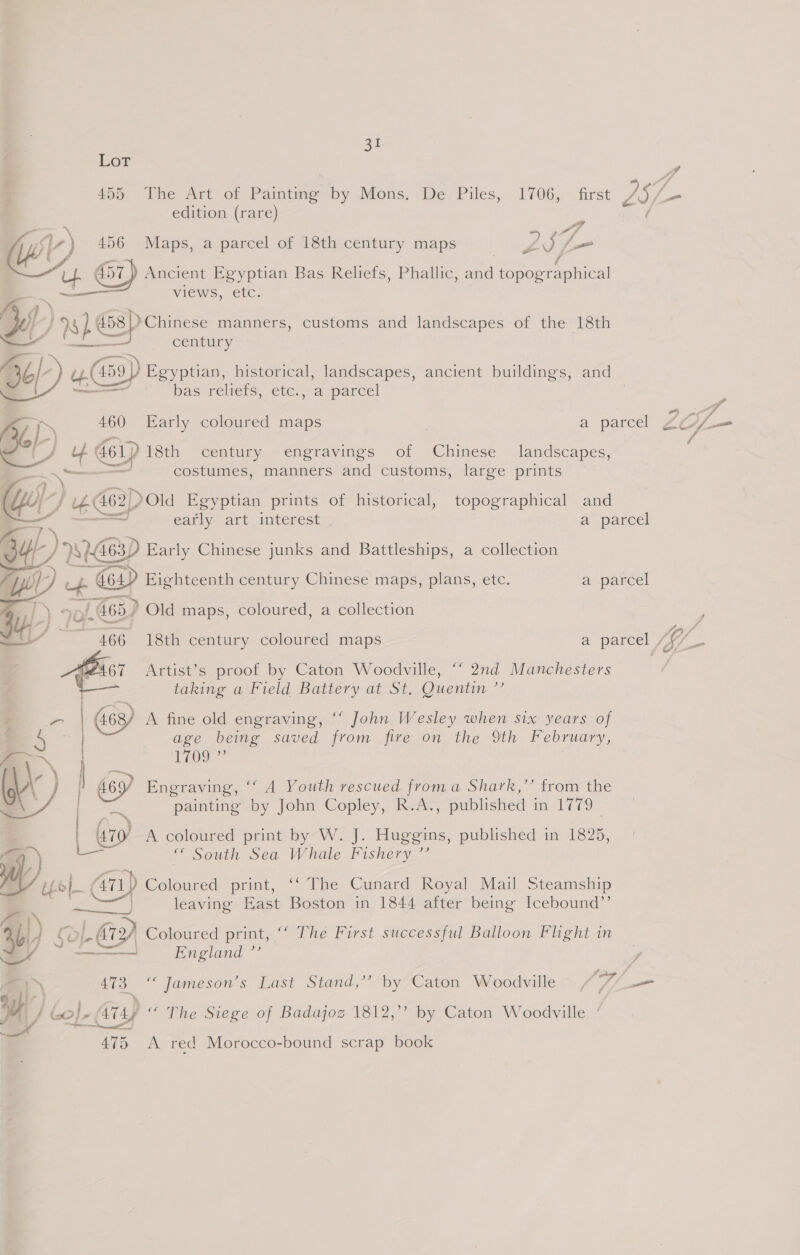 31
Lot
455 The Art of Painting by Mons. De Piles, 1706, first 25/-
edition (rare)
456 Maps, a parcel of 18th century maps 25/-
457 Ancient Egyptian Bas Reliefs, Phallic, and topographical
views, etc.
458 Chinese manners, customs and landscapes of the 18th
century
459 Egyptian, historical, landscapes, ancient buildings, and
bas reliefs, etc., a parcel
460 Early coloured maps a parcel 20/-
461 18th century engravings of Chinese landscapes,
costumes, manners and customs, large prints
462 Old Egyptian prints of historical, topographical and
early art interest a parcel
463 Early Chinese junks and Battleships, a collection
464 Eighteenth century Chinese maps, plans, etc. a parcel
465 Old maps, coloured, a collection
466 18th century coloured maps a parcel
467 Artist's proof by Caton Woodville, “ 2nd Manchesters
taking a Field Battery at St. Quentin ”
468 A fine old engraving, “ John Wesley when six years of
age being saved from fire on the 9th February,
1709 ”
469 Engraving, “ A Youth rescued from a Shark,” from the
painting by John Copley, R.A., published in 1779
470 A coloured print by W. J. Huggins, published in 1825,
“ South Sea Whale Fishery ”
471 Coloured print, “ The Cunard Royal Mail Steamship
leaving East Boston in 1844 after being Icebound”
472 Coloured print, “ The First successful Balloon Flight in
England ”
473 “ Jameson's Last Stand,” by Caton Woodville
474 “ The Siege of Badajoz 1812,” by Caton Woodville
475 A red Morocco-bound scrap book